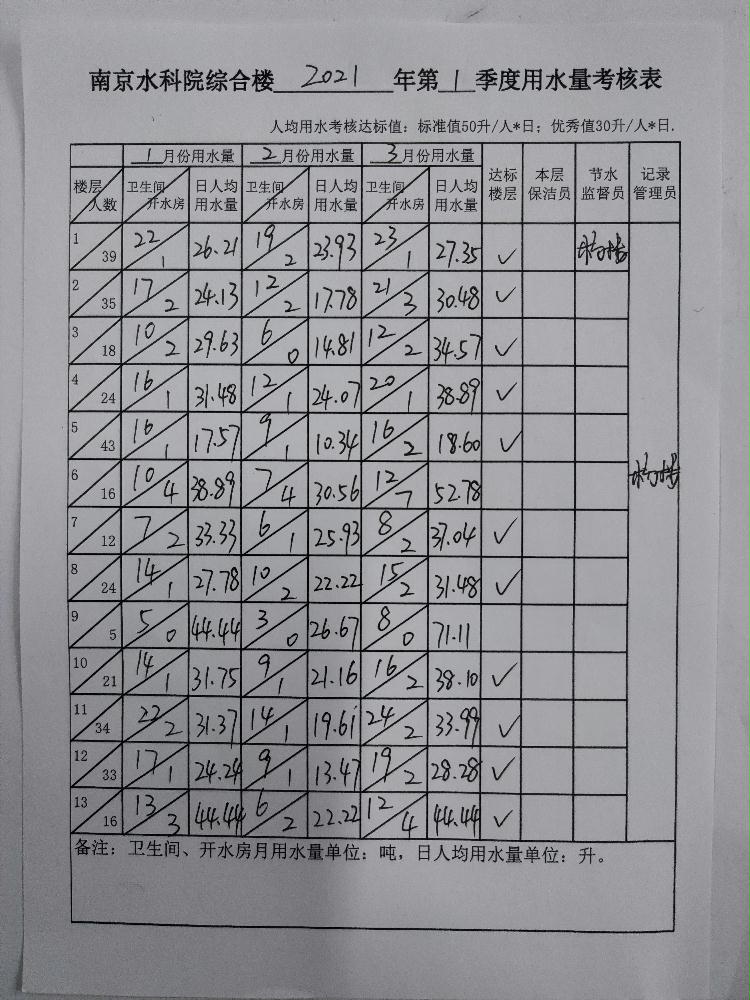 南京水科院综合楼 2021 年第 1 季度用水量考核表
人均用水考核达标值：标准值50升/人*日；优秀值30升/人*日.
楼层 人数 1月份用水量 2月份用水量 3月份用水量 达标楼层 本层保洁员 节水监督员 记录管理员
卫生间 开水房 日人均用水量 卫生间 开水房 日人均用水量 卫生间 开水房 日人均用水量
1 39 22 1 26.21 19 2 23.93 23 1 27.35 ✓
2 35 17 2 24.13 12 2 17.78 21 3 30.48 ✓
3 18 10 2 29.63 6 0 14.81 12 2 34.57 ✓
4 24 16 1 31.48 12 1 24.07 20 1 38.89 ✓
5 43 16 1 17.57 9 1 10.34 16 2 18.60 ✓
6 16 10 4 38.89 7 4 30.56 12 7 52.78
7 12 7 2 33.33 6 1 25.93 8 2 37.04 ✓
8 24 14 1 27.78 10 2 22.22 15 2 31.48 ✓
9 5 5 0 44.44 3 0 26.67 8 0 71.11
10 21 14 1 31.75 9 1 21.16 16 2 38.10 ✓
11 34 22 2 31.37 14 1 19.61 24 2 33.99 ✓
12 33 17 1 24.24 9 1 13.47 19 2 28.28 ✓
13 16 13 3 44.44 6 2 22.22 12 4 44.44 ✓
备注：卫生间、开水房月用水量单位：吨，日人均用水量单位：升。